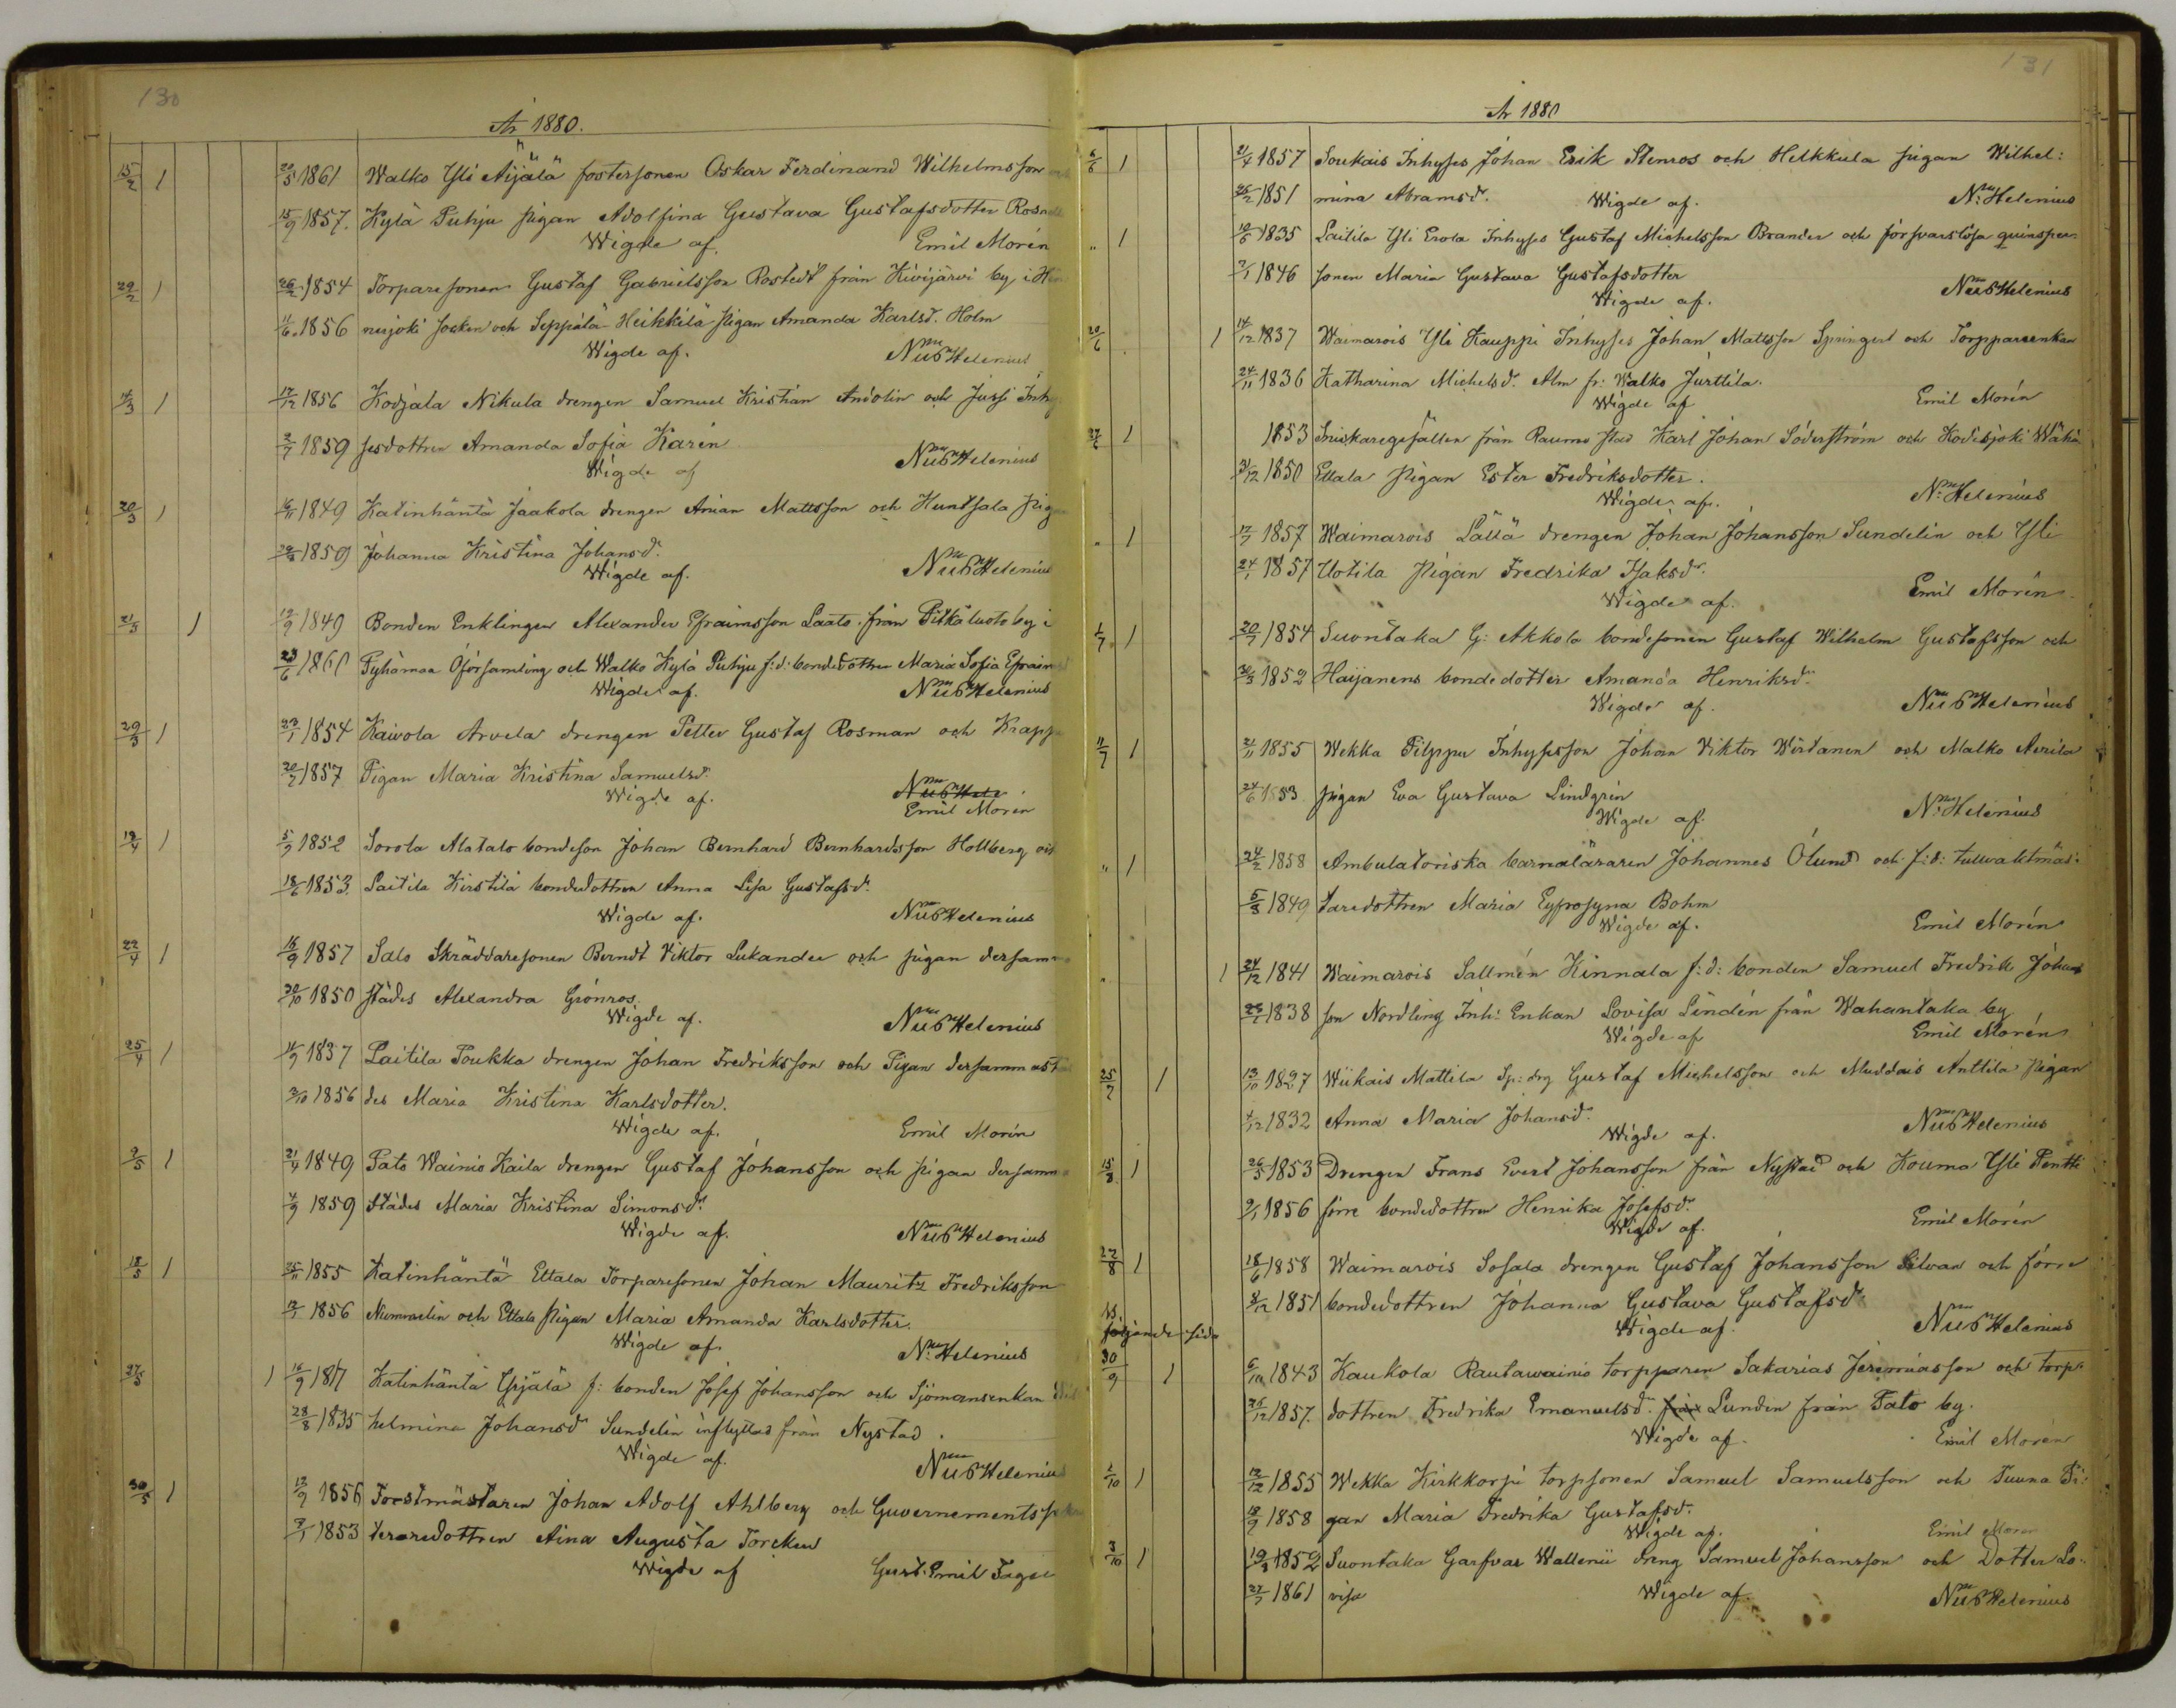 130
År 1880.
15/2 1 20/5 1861 Walko Yli Äijälä fostersonen Oskar Ferdinand Wilhelmsson
15/9 1857. Kylä Puhju pigan Adolfina Gustava Gustafsdotter
Wigde af. Emil Morén
29/2 1 26/2 1854 Torparesonen Gustaf Gabrielsson Rostedt från Kivijärvi by i Hin
11/6 1856 nerjoki socken och Seppälä-Heikkilä pigan Amanda Karlsd. Holm
Wigde af. Helenius
4/3 1 17/12 1856 Kodjala Nikula drengen Samuel Kristian Andolin och Jussi Inhy
2/7 1859 sesdottren Amanda Sofia Karén
Wigde af Helenius
20/3 1 6/11 1849 Katinhäntä Jaakola drengen Anian Mattsson och Huntsala pigan
1859 Johanna Kristina Johansd.
Wigde af. Helenius
21/3 1 19/9 1849 Bonden Enklingen Alexander Efraimsson Laato från Pitkäluoto by i
23/6 1860 Pyhämaa Öförsamling och Walko Kylä Puhju f:d: bondedottren Maria Sofia Efraimsd
Wigde af. Helenius
29/3 1 23/1 1854 Kaivola Arvela drengen Petter Gustaf Rosman och Krapp
20/7 1857 Pigan Maria Kristina Samuelsd.
Wigde af.
Emil Morén
18/4 1 5/7 1852 Sorola Alatalo bondeson Johan Bernhard Bernhardsson Hollberg och
18/6 1853 Laitila Kirstilä bondedottren Anna Lisa Gustafsd.
Wigde af. Helenius
22/4 1 16/9 1857 Salo Skräddaresonen Berndt Viktor Lukander och pigan dersamma
30/10 1850 städes Alexandra Grönros.
Wigde af. Helenius
25/4 1 11/9 1837 Laitila Poukka drengen Johan Fredriksson och Pigan dersammastä
3/10 1856 des Maria Kristina Karlsdotter.
Wigde af. Emil Morén
9/5 1 21/4 1849 Pato Wainio Kaila drengen Gustaf Johansson och pigan dersamma
4/9 1859 städes Maria Kristina Simonsd.
Wigde af. Helenius
18/5 1 25/11 1855 Katinhäntä Ettala Torparesonen Johan Mauritz Fredriksson
12/1 1856 Nummelin och Ettala Pigan Maria Amanda Karlsdotter.
Wigde af. N. Helenius
27/5 1 16/9 1817 Katinhäntä Yrjälä f: bonden Josef Johansson och Sjömansenkan Wil
28/8 1835 helmina Johansd Sundelin inflyttad från Nystad.
Wigde af. Helenius
30/5 1 12/9 1856 Forstmästaren Johan Adolf Ahlberg och Guvernements
3/1 1853 teraredottren Aina Augusta Torckell
Wigde af Gust. Emil
131
År 1880
6/6 1 21/4 1857 Soukais Inhyses Johan Erik Stenros och Helkkula pigan Wilhel:
25/2 1851 mina Abramsd. Wigde af. N: Helenius
" 1 10/5 1835 Laitila Yli Erola Inhyses Gustaf Michelsson Brander och försvarslösa qvinsper-
7/1 1846 sonen Maria Gustava Gustafsdotter
Wigde af. Helenius
20/6 1 14/12 1837 Waimarois Yli Kauppi Inhyses Johan Mattsson Springert och Torpparenkan
24/11 1836 Katharina Michelsd. Alm fr: Walko Jurttila.
Wigde af Emil Morén
27/6 1 1853 Sniskaregesällen från Raumo stad Karl Johan Söderström och Kodisjoki Wähä
31/12 1850 Ettala Pigan Ester Fredriksdotter.
Wigde af. N: Helenius
" 1 17/7 1857 Waimarois Lällä drengen Johan Johansson Sundelin och Yli
24/1 1857 Uotila Pigan Fredrika Isaksdr.
Wigde af. Emil Morén
1/7 1 20/7 1854 Suontaka G: Akkola bondesonen Gustaf Wilhelm Gustafsson och
30/3 1852 Haijanens bondedotter Amanda Henriksd.
Wigde af. Helenius
11/7 1 2/11 1855 Wekka Filppu Inhysesson Johan Viktor Wirtanen och Malko Aerila
24/6 1853 pigan Eva Gustava Lindgrén
Wigde af. N: Helenius
" 1 24/2 1858 Ambulatoriska barnaläraren Johannes Ölund och f:d: tullvaktmäs:
5/3 1849 taredottren Maria Eyfrosyna Bohm
Wigde af. Emil Morén
" 1 24/12 1841 Waimarois Sallmén Kinnala f:d: bonden Samuel Fredrik Johans
23/1 1838 son Nordling Inh: Enkan Lovisa Lindén från Wahantaka by
Wigde af Emil Morén
25/7 1 13/10 1827 Wiikais Mattila Sp: drg Gustaf Michelsson och Muddais Anttila Pigan
4/12 1832 Anna Maria Johansd.
Wigde af. Helenius
15/8 1 26/5 1853 Drengen Frans Evert Johansson från Nystad och Kouma Yli Pentti
9/1 1856 förre bondedottren Henrika Josefsd.
Wigde af. Emil Morén
22/8 1 18/6 1858 Waimarois Sosala drengen Gustaf Johansson Silvan och förre
3/12 1851 bondedottren Johanna Gustava Gustafsd.
Wigde af. Helenius
följande sida
30/9 1 6/10 1843 Kaukola Rautawainio torpparen Sakarias Jeremiasson och torp-
25/12 1857. dottren Fredrika Emanuelsd. från Lundén från Pato by.
Wigde af. Emil Morén
1/10 1 12/12 1855 Wekka Kirkkorpi torpsonen Samuel Samuelsson och Tuuna Pi:
18/9 1858 gan Maria Fredrika Gustafsd.
Wigde af. Emil Morén
3/10 1 19/3 1852 Suontaka Garfvar Wallenii dreng Samuel Johansson och Dotter Lo-
27/7 1861 visa Wigde af. Helenius